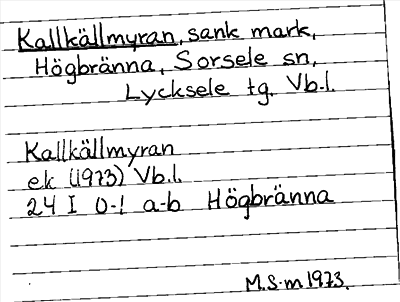 Kallkällmyran, sank mark,
Högbränna, Sorsele sn,
Lycksele tg. Vb.l.
Kallkällmyran
ek (1973) Vb.l.
24 I 0-1 a-b Högbränna
M.S-m 1973.